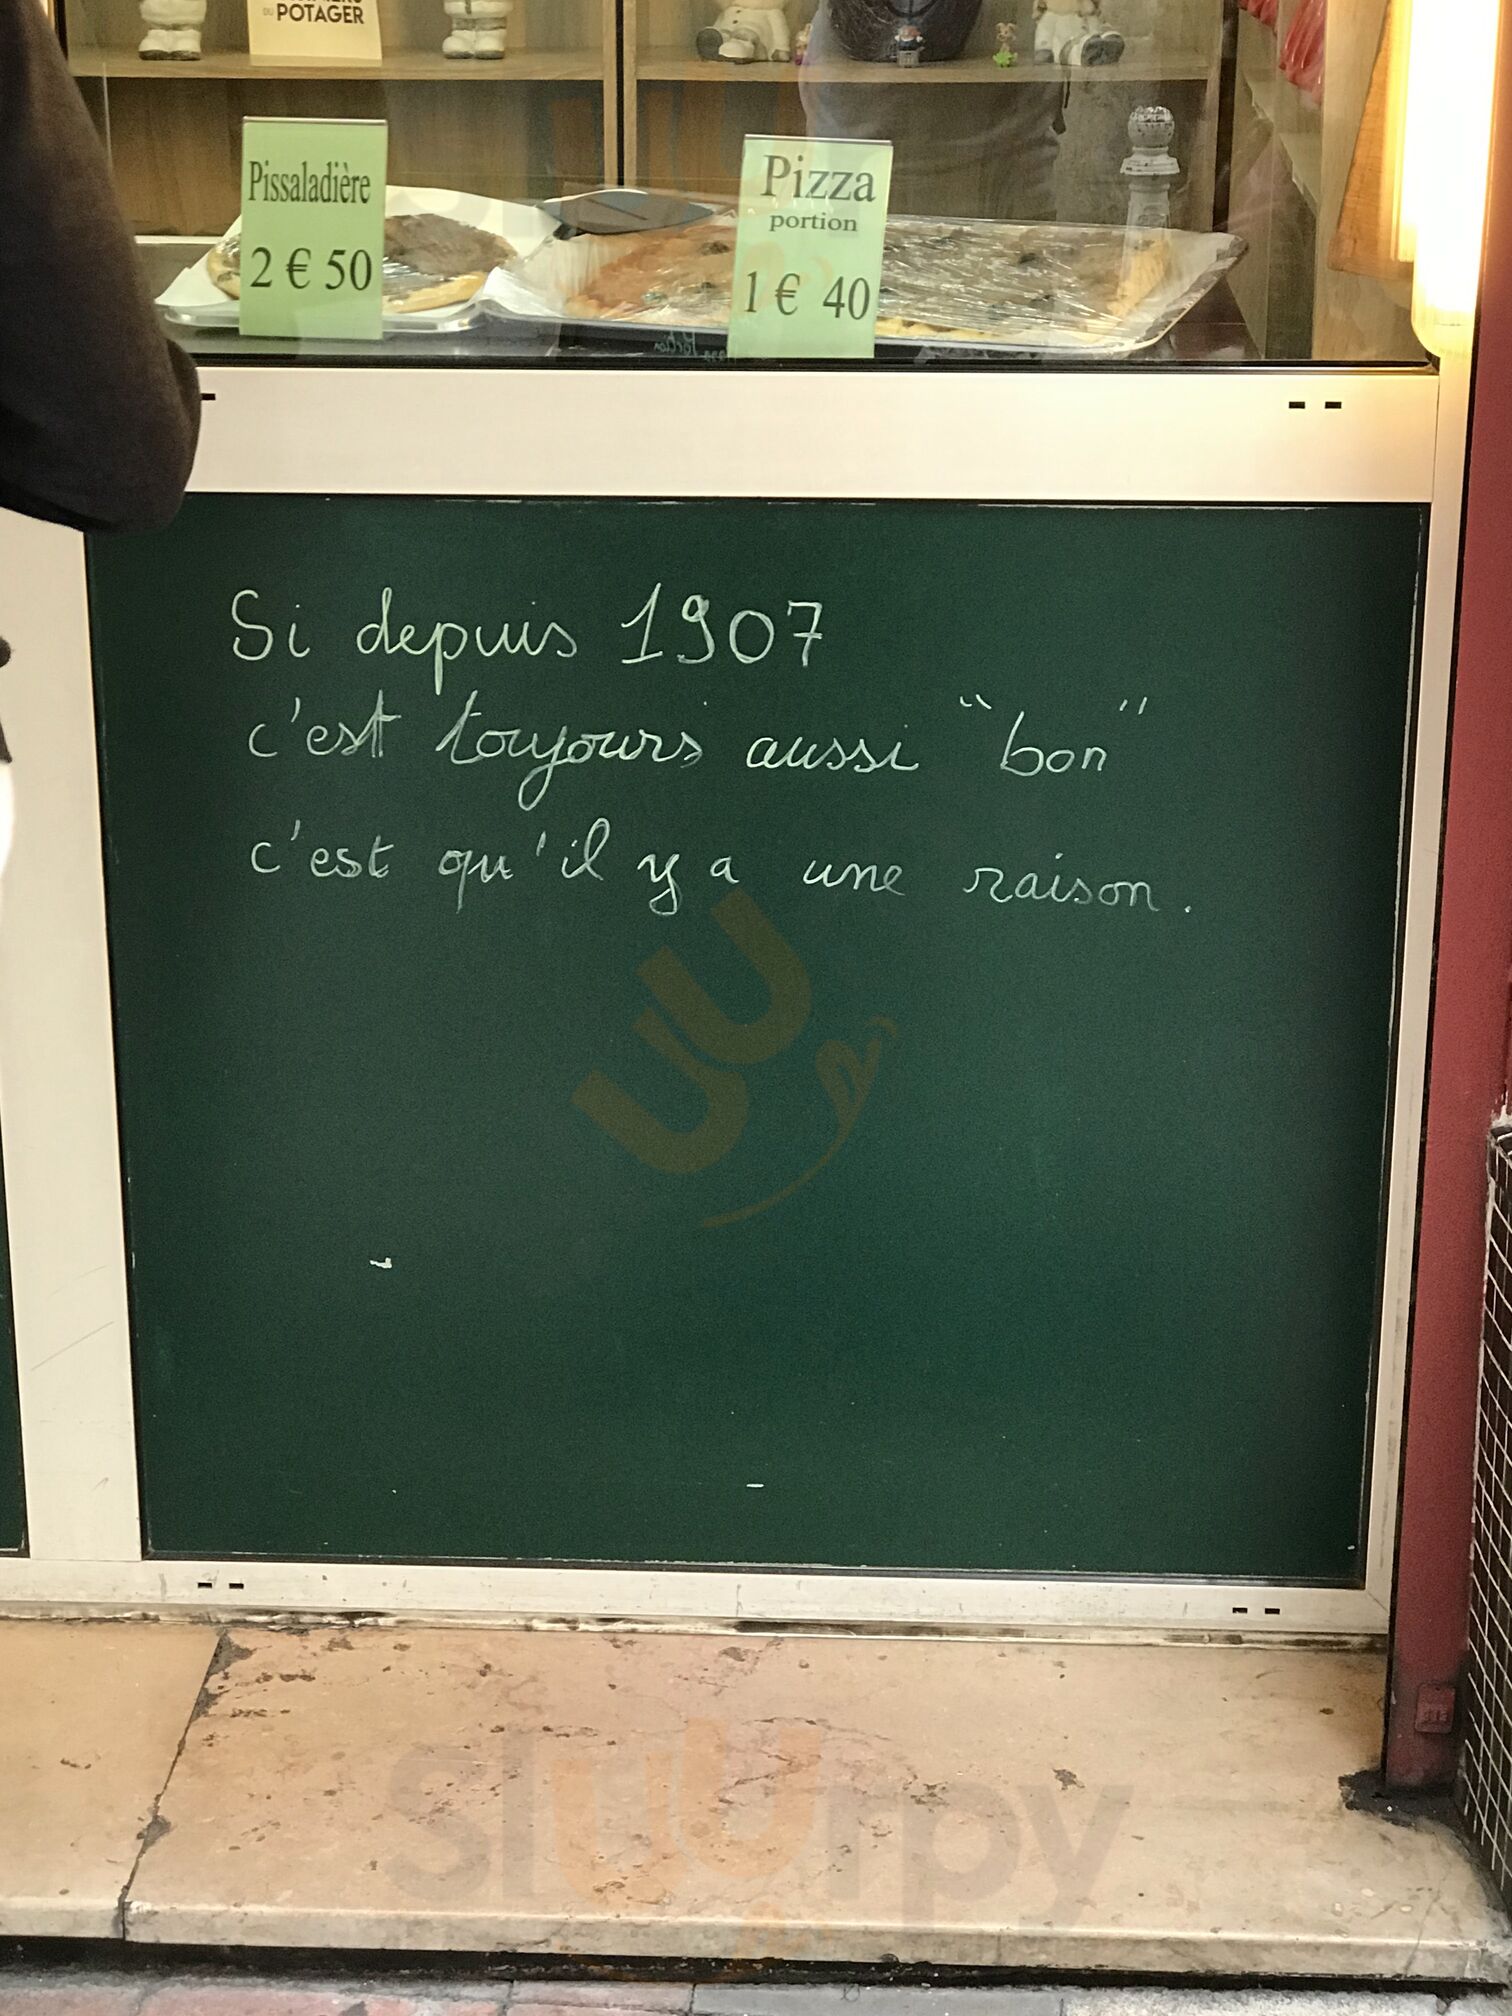 DU POTAGER
Pissaladière
2 € 50
Pizza
portion
1 € 40
Si depuis 1907
c'est toujours aussi "bon"
c'est qu'il y a une raison.
sluurpy